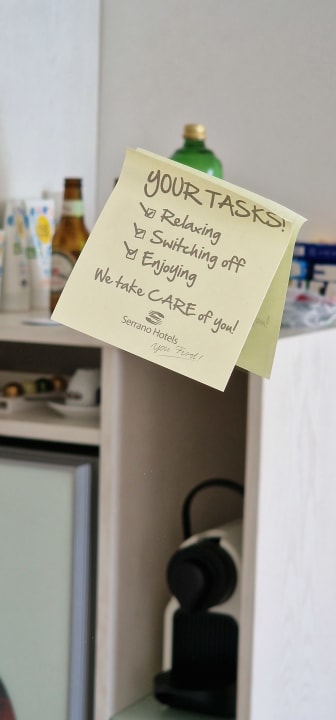 YOUR TASKS!
Relaxing
Switching off
Enjoying
We take CARE of you!
Serrano Hotels
you First!